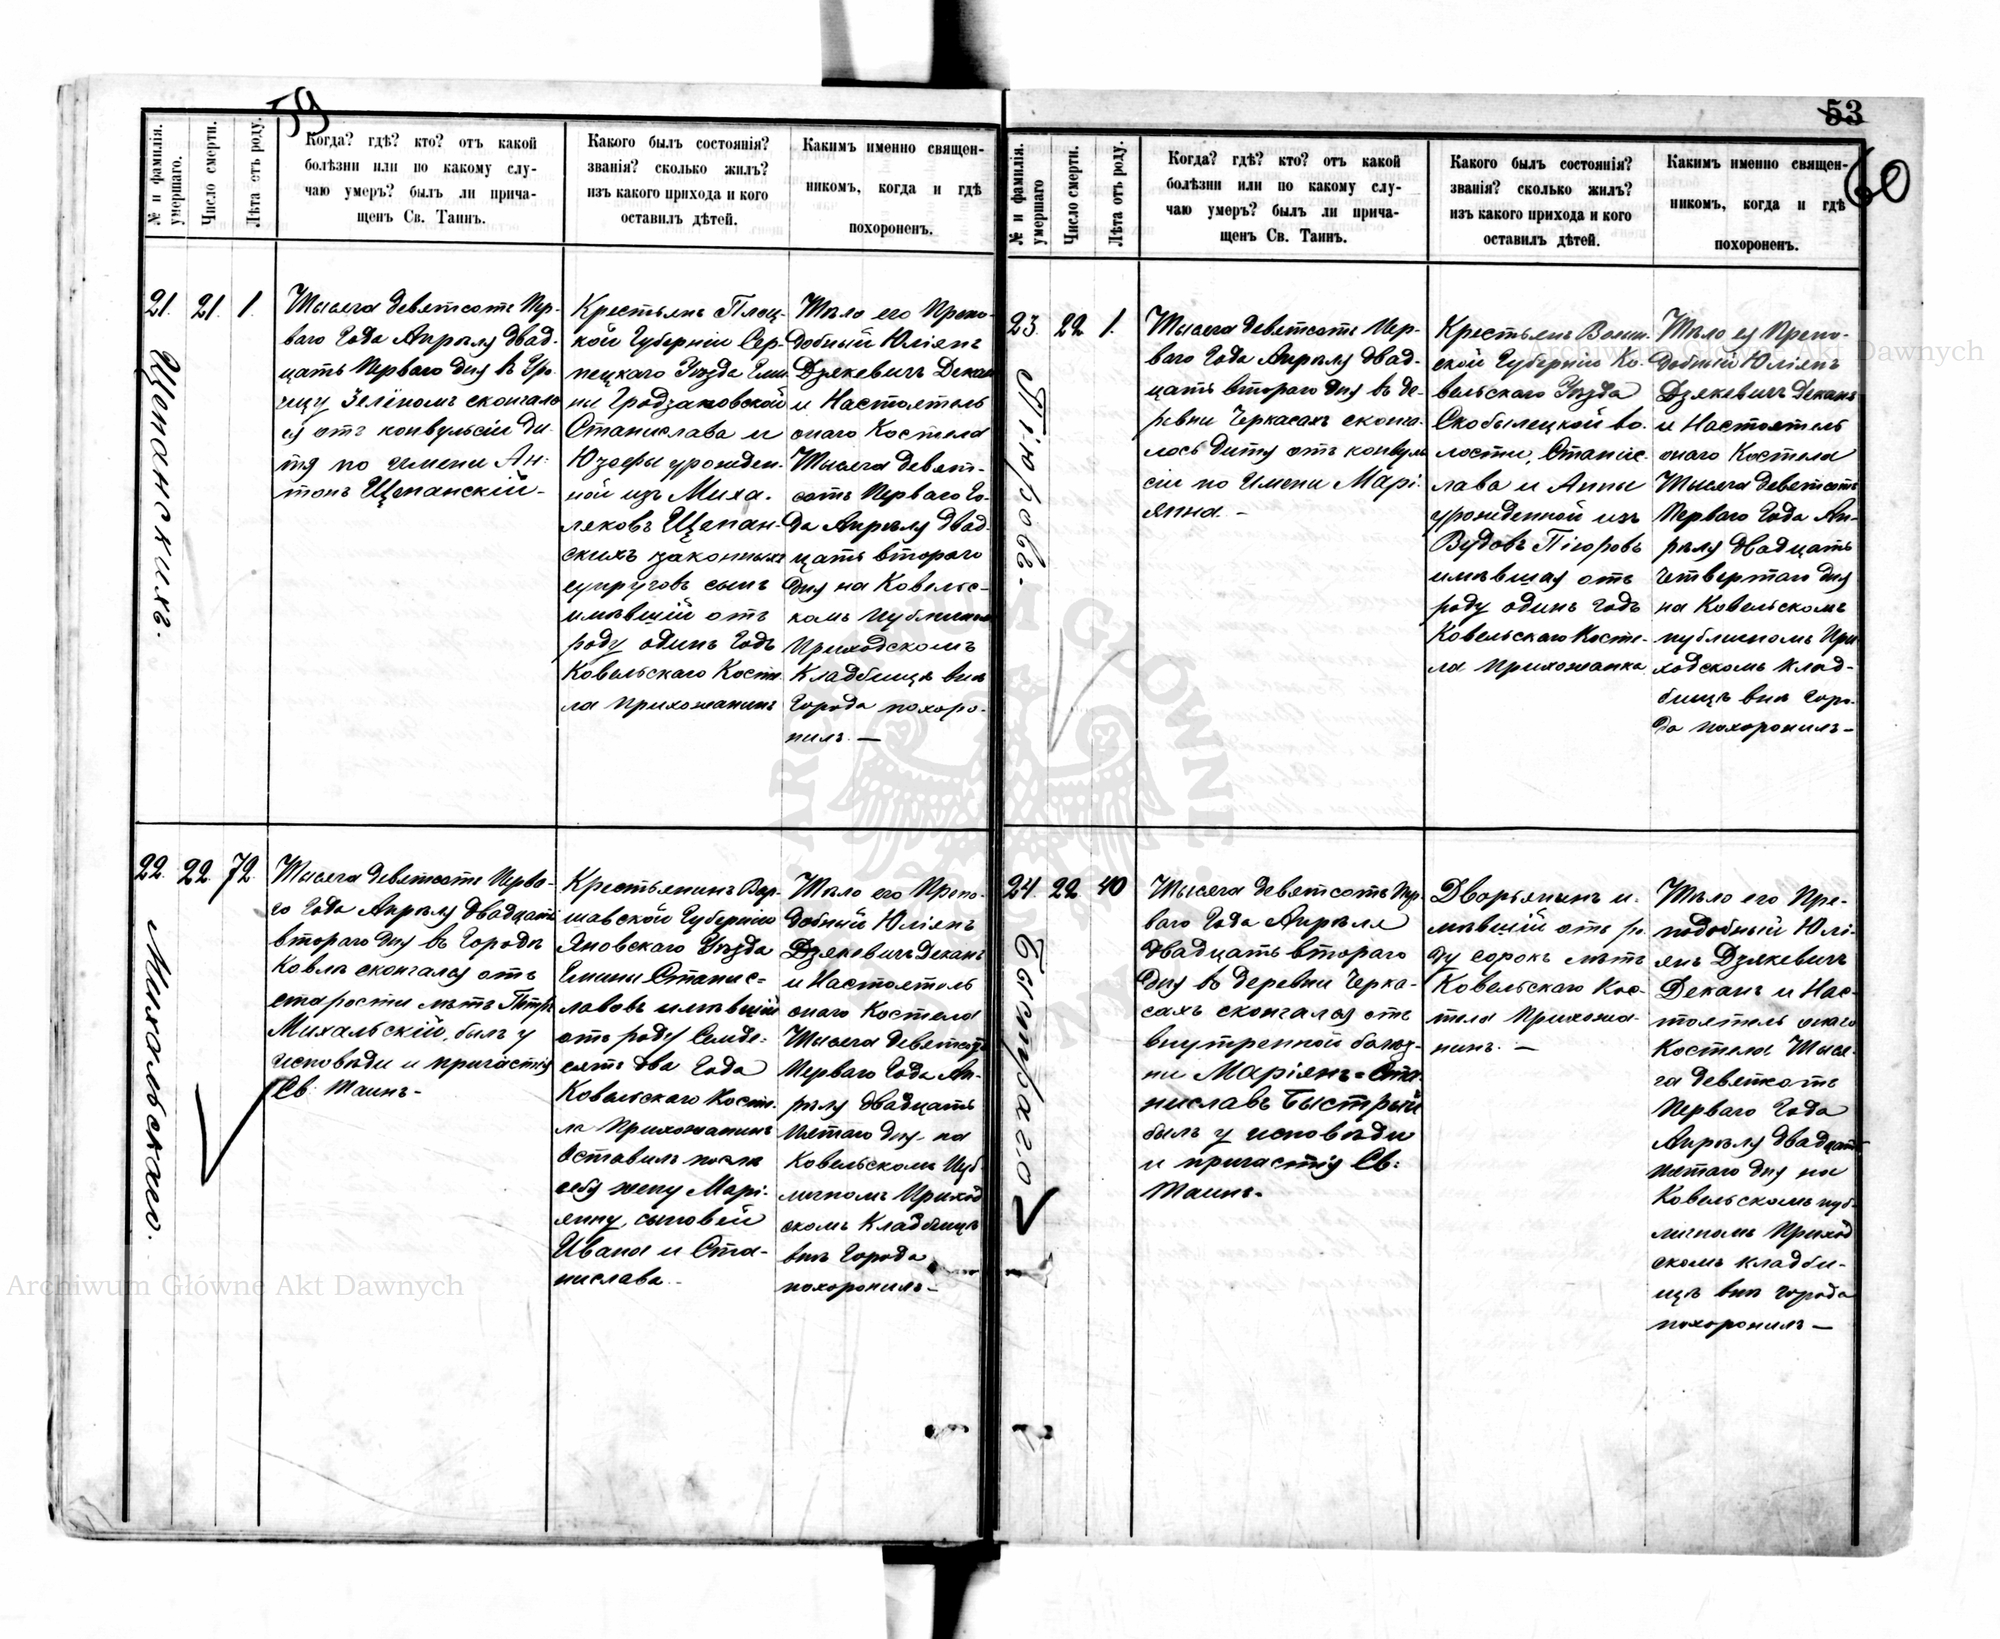 59
№ и фамилія. умершаго.
Число смерти.
Лѣта отъ роду.
Когда? гдѣ? кто? отъ какой
болѣзни или по какому слу-
чаю умеръ? былъ ли прича-
щенъ Св. Таинъ.
Какого былъ состоянія?
званія? сколько жилъ?
изъ какого прихода и кого
оставилъ дѣтей.
Какимъ именно священ-
никомъ, когда и гдѣ
похороненъ.
21.
Щепанскихъ.
21.
1.
Тысяча девятсотъ Пер-
ваго Года Апрѣля двад-
цать Перваго дня въ Уро-
чищу Зелёномъ скончало
ся отъ конвульсіи ди-
тя по имени Ан-
тонъ Щепанскій-
Крестьянъ Плоц-
кой Губерніи Сер-
пецкаго Уѣзда Гми-
ни Гродзановской
Станислава и
Юзефы урожден-
ной изъ Миха-
лековъ Щепан-
скихъ законныхъ
супруговъ сынъ
имѣвшій отъ
роду одинъ Годъ
Ковельскаго Косте
ла Прихожанинъ
Тѣло его Препо-
добный Юліянъ
Дзякевичъ Деканъ
и Настоятель
онаго Костела
Тысяча девят-
сотъ Перваго Го-
да Апрѣля двад-
цать втораго
дня на Ковельс-
комъ публичномъ
Приходскомъ
Кладбищѣ внѣ
Города похоро-
нилъ. —
22.
Михальскаго.
22.
72.
Тысяча девятсотъ Перво-
го Года Апрѣля двадцать
втораго дня въ Городѣ
Ковлѣ скончался отъ
старости лѣтъ Петръ
Михальскій, былъ у
исповѣди и причастія
Св. Таинъ-
Крестьянинъ Вар-
шавской Губерніи
Яновскаго Уѣзда
Гмини Станис-
лавовъ имѣвшій
отъ роду Семде-
сятъ два Года
Ковельскаго Косте-
ла Прихожанинъ
оставилъ послѣ
себя жену Марі-
янну, сыновей
Ивана и Ста-
нислава. -
Тѣло его Препо-
добный Юліянъ
Дзякевичъ Деканъ
и Настоятель
онаго Костела
Тысяча девятсотъ
Перваго Года Ап-
рѣля двадцать
Пятаго дня на
Ковельскомъ Пуб-
личномъ Приход
скомъ Кладбищѣ
внѣ Города
похоронилъ-
53
60
№ и фамилія. умершаго
Число смерти.
Лѣта отъ роду.
Когда? гдѣ? кто? отъ какой
болѣзни или по какому слу-
чаю умеръ? былъ ли прича-
щенъ Св. Таинъ.
Какого былъ состоянія?
званія? сколько жилъ?
изъ какого прихода и кого
оставилъ дѣтей.
Какимъ именно священ-
никомъ, когда и гдѣ
похороненъ.
23.
Пюровъ.
22
1.
Тысяча девятсотъ Пер-
ваго Года Апрѣля двад-
цать втораго дня въ де-
ревни Черкасахъ сконча-
лось дитя отъ конвуль
сіи по Имени Марі-
янна. -
Крестьянъ Волын-
ской Губерніи Ко-
вельскаго Уѣзда
Скобылецкой во-
лости, Станис-
лава и Анны
урожденной изъ
Вудовъ Піюровъ
имѣвшая отъ
роду одинъ годъ
Ковельскаго Косте-
ла Прихожанка
Тѣло ея Препо-
добный Юліянъ
Дзякевичъ Деканъ
и Настоятель
онаго Костела
Тысяча девятсотъ
Перваго Года Ап-
рѣля двадцать
Четвертаго дня
на Ковельскомъ
публичномъ При
ходскомъ клад-
бищѣ внѣ Горо-
да похоронилъ-
24.
Быстраго
22.
40
Тысяча девятсотъ Пер
ваго Года Апрѣля
двадцать втораго
дня въ деревни Черка-
сахъ скончался отъ
внутренной болѣз-
ни Маріянъ-Ста-
ниславъ Быстрый
былъ у исповѣди
и причастія Св:
Таинъ-
Дворянинъ и-
мѣвшій отъ ро-
ду сорокъ лѣтъ
Ковельскаго Кос-
тела Прихожа-
нинъ. —
Тѣло его Пре-
подобный Юлі-
янъ Дзякевичъ
Деканъ и Нас-
тоятель онаго
Костела Тыся-
ча девятсотъ
Перваго Года
Апрѣля двадцать
пятаго дня на
Ковельскомъ пуб-
личномъ Приход
скомъ кладби-
щѣ внѣ города
похоронилъ —
Archiwum Główne Akt Dawnych
Archiwum Główne Akt Dawnych